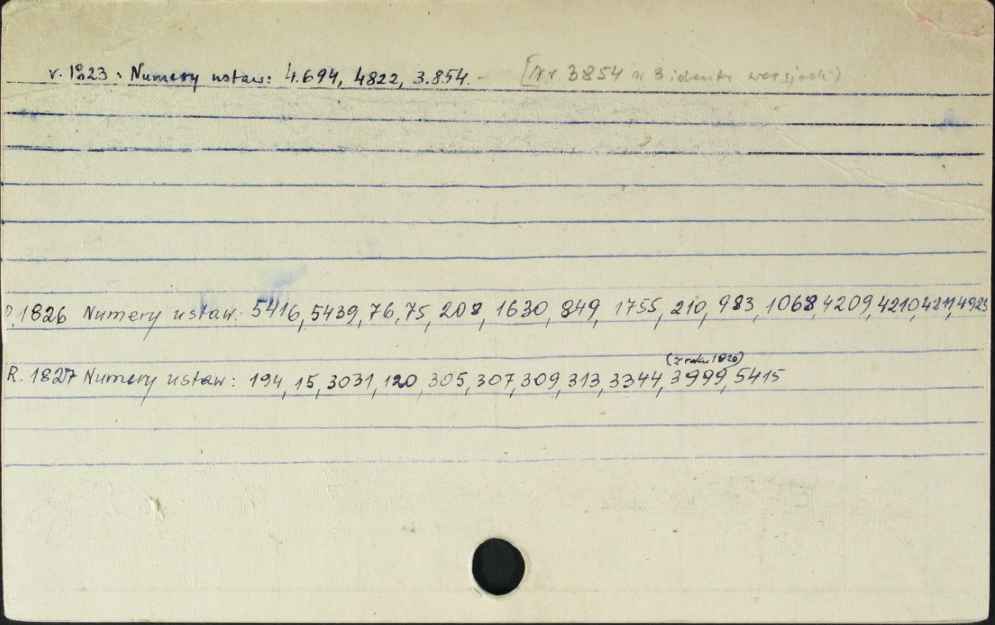 r. 1823. Numery ustaw: 4.694, 4822, 3.854. - [Nr 3854 w 3 ident. wersjach)
R. 1826 Numery ustaw: 5416, 5439, 76, 75, 208, 1630, 849, 1755, 210, 983, 1068, 4209, 4210, 4211, 4923
(z roku 1826)
R. 1827 Numery ustaw: 194, 15, 3031, 120, 305, 307, 309, 313, 3344, 3999, 5415